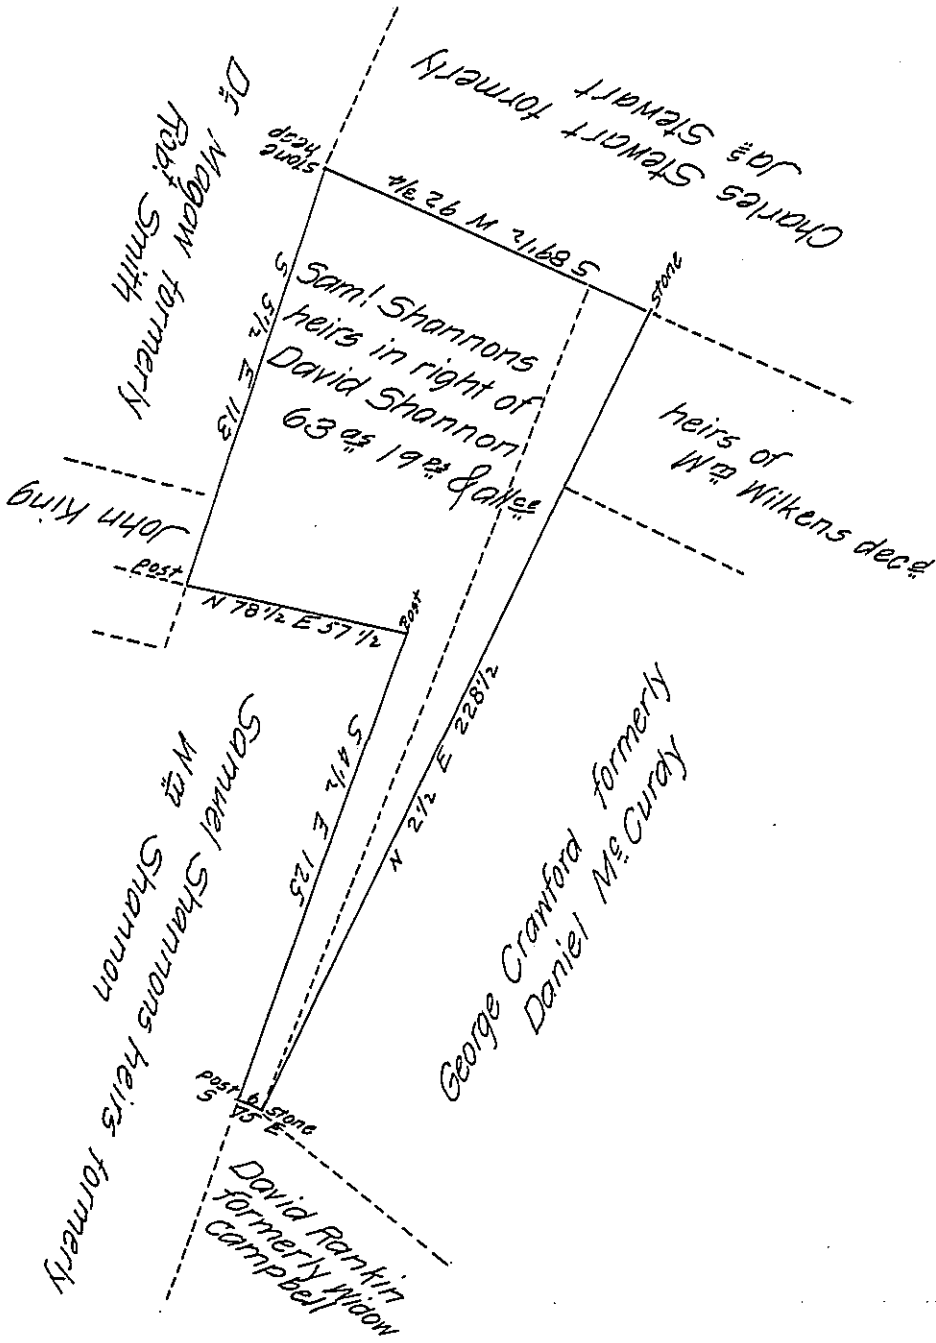 Charles Stewart formerly
Jaˢ Stewart
Dr Magaw formerly
Robt Smith
stone
heap
S 89 1/2 W 92 3/4
stone
S 5 1/2 E 113
Saml Shannons
heirs in right of
David Shannon
63 aˢ 19 pˢ & allce
heirs of
Wm Wilkens decd
John King
post
N 78 1/2 E 57 1/2
post
S 4 1/2 E 125
N 2 1/2 E 228 1/2
George Crawford formerly
Daniel McCurdy
Samuel Shannons heirs formerly
Wm Shannon
post
S 75 E 6
stone
David Rankin
formerly Widow
Campbell